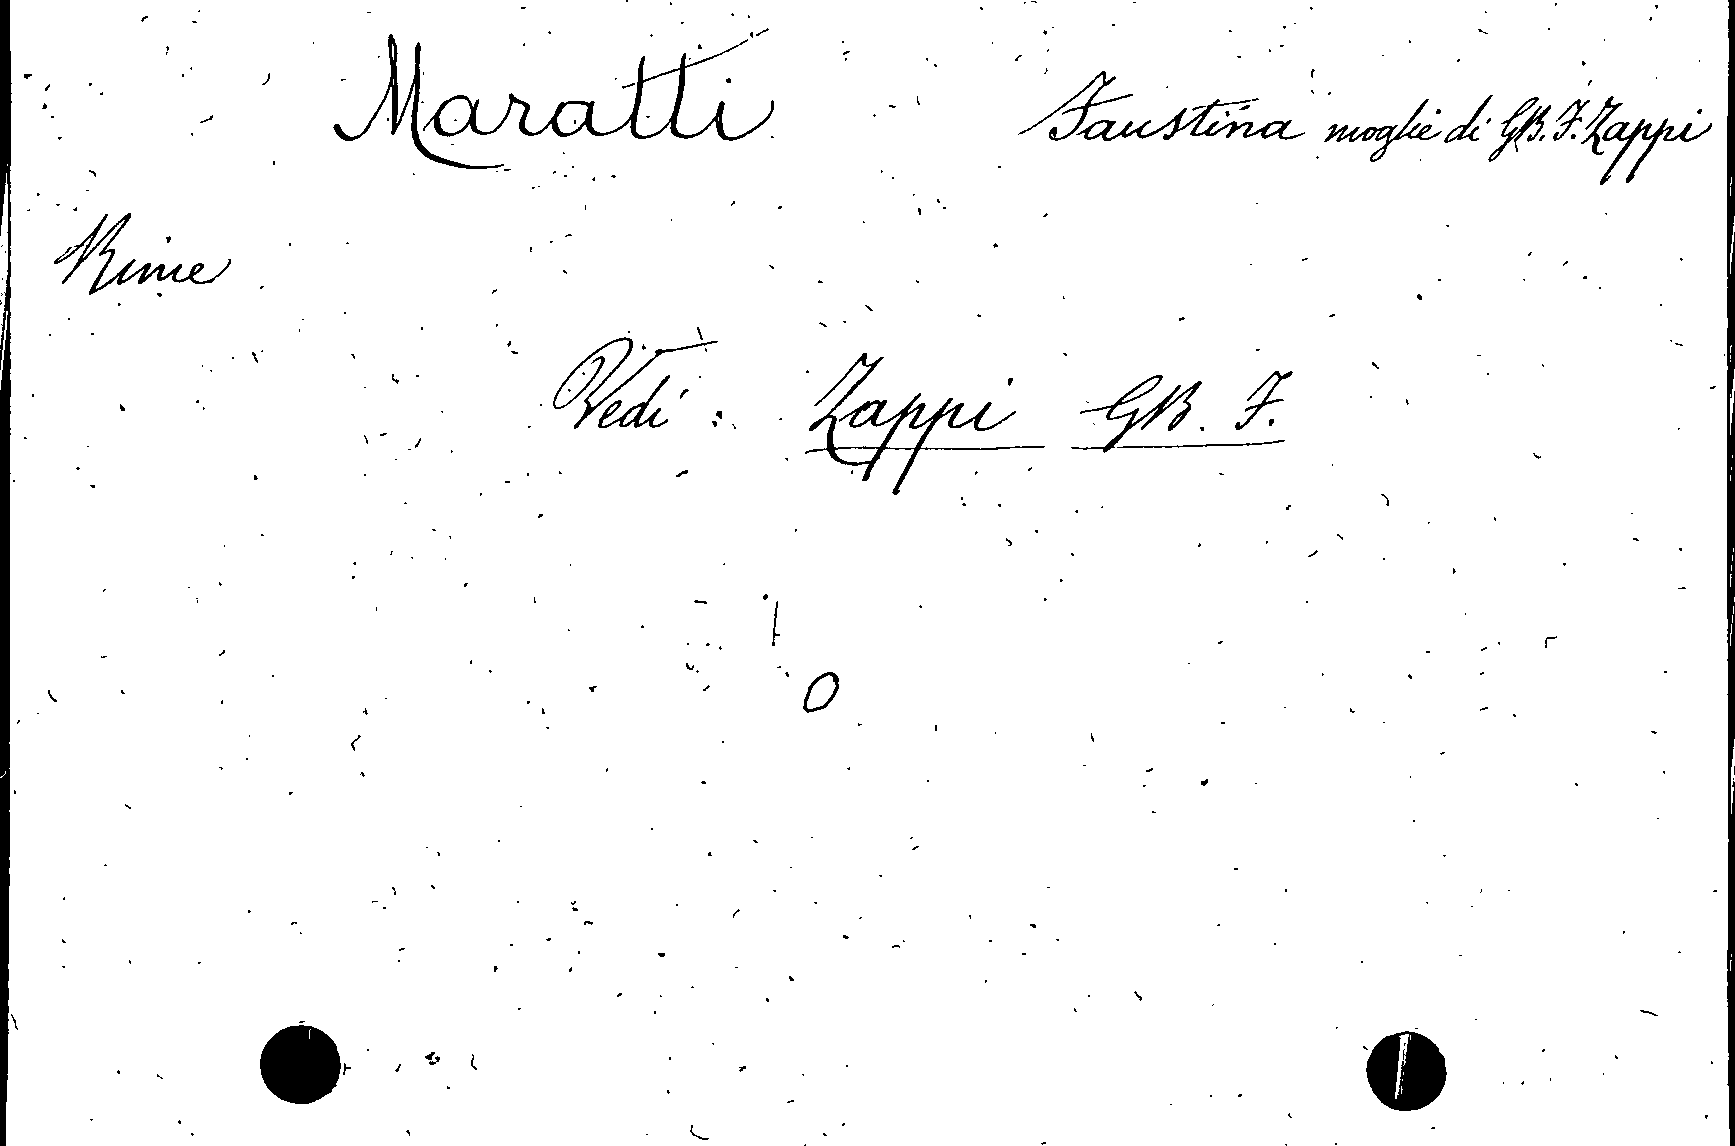 Maratti Faustina moglie di GB. F. Zappi
Rime
Vedi: Zappi GB. F.